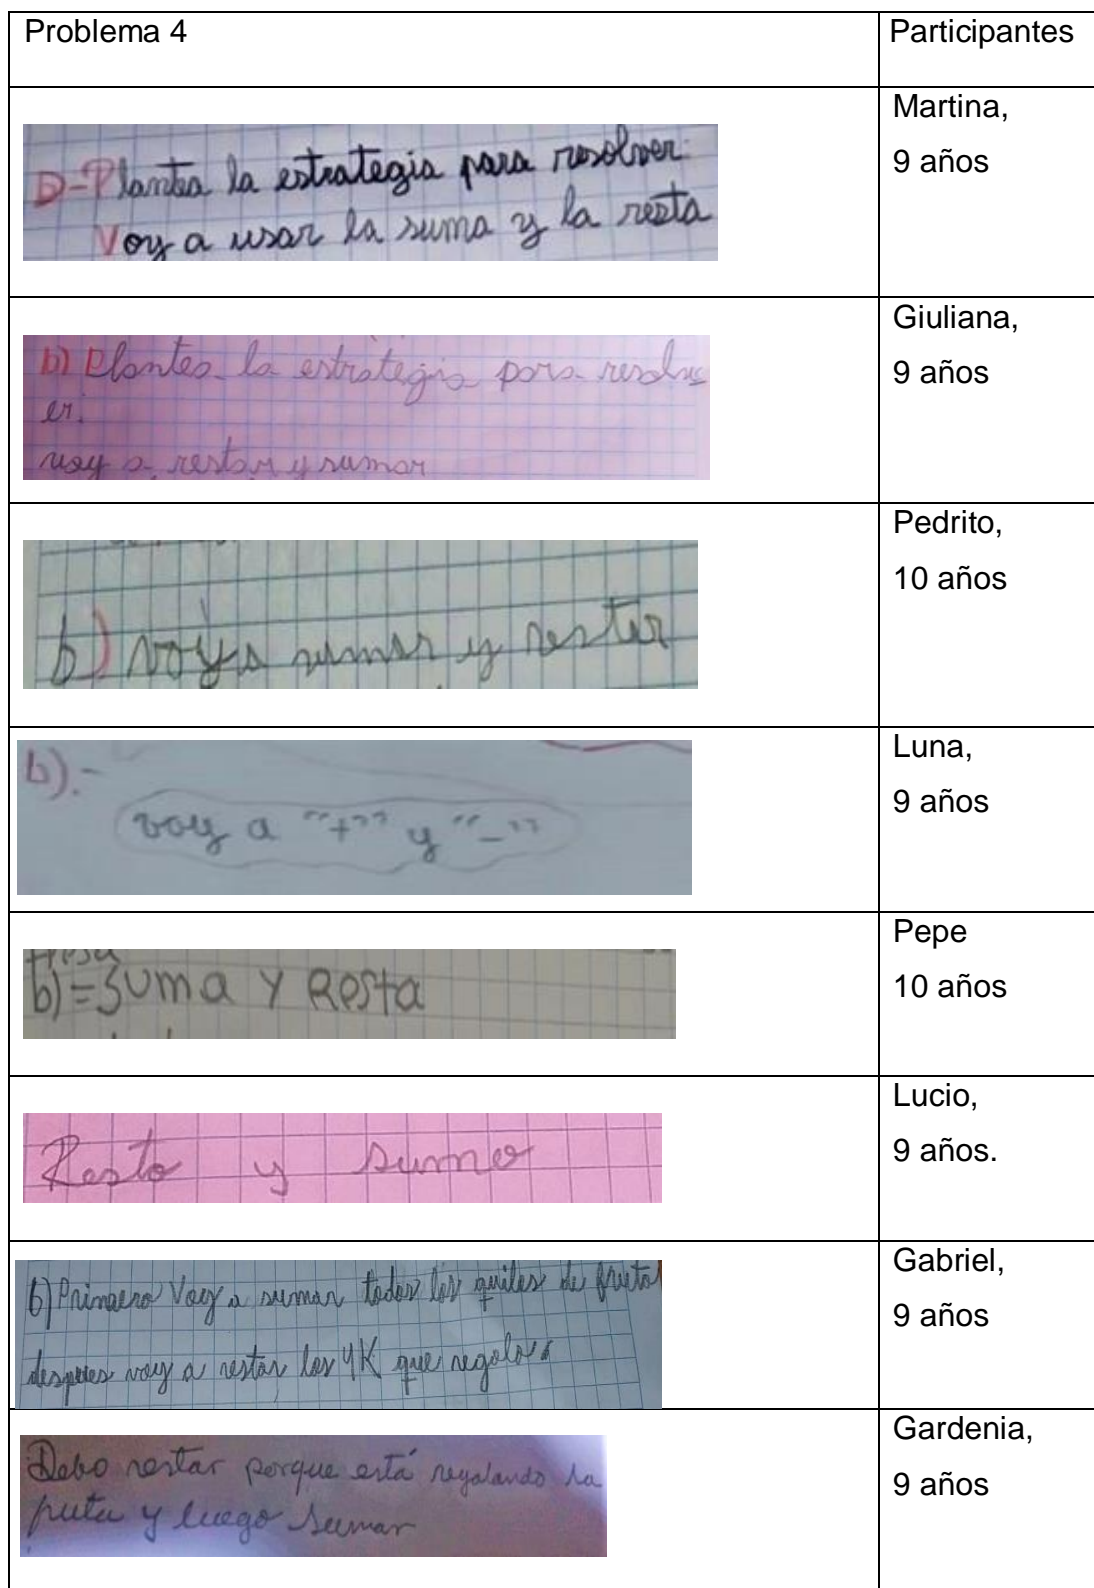 Problema 4
Participantes
D-Plantea la estrategia para resolver:
Voy a usar la suma y la resta
Martina,
9 años
b) Plantea la estrategia para resolv
er.
voy a restar y sumar
Giuliana,
9 años
b) voy a sumar y restar
Pedrito,
10 años
b).-
voy a "+" y "-"
Luna,
9 años
b)=Suma y Resta
Pepe
10 años
Resto y sumo
Lucio,
9 años.
b) Primero Voy a sumar todos los quilos de fruta
despues voy a restar los 4K que regalo.
Gabriel,
9 años
Debo restar porque está regalando la
fruta y luego sumar
Gardenia,
9 años